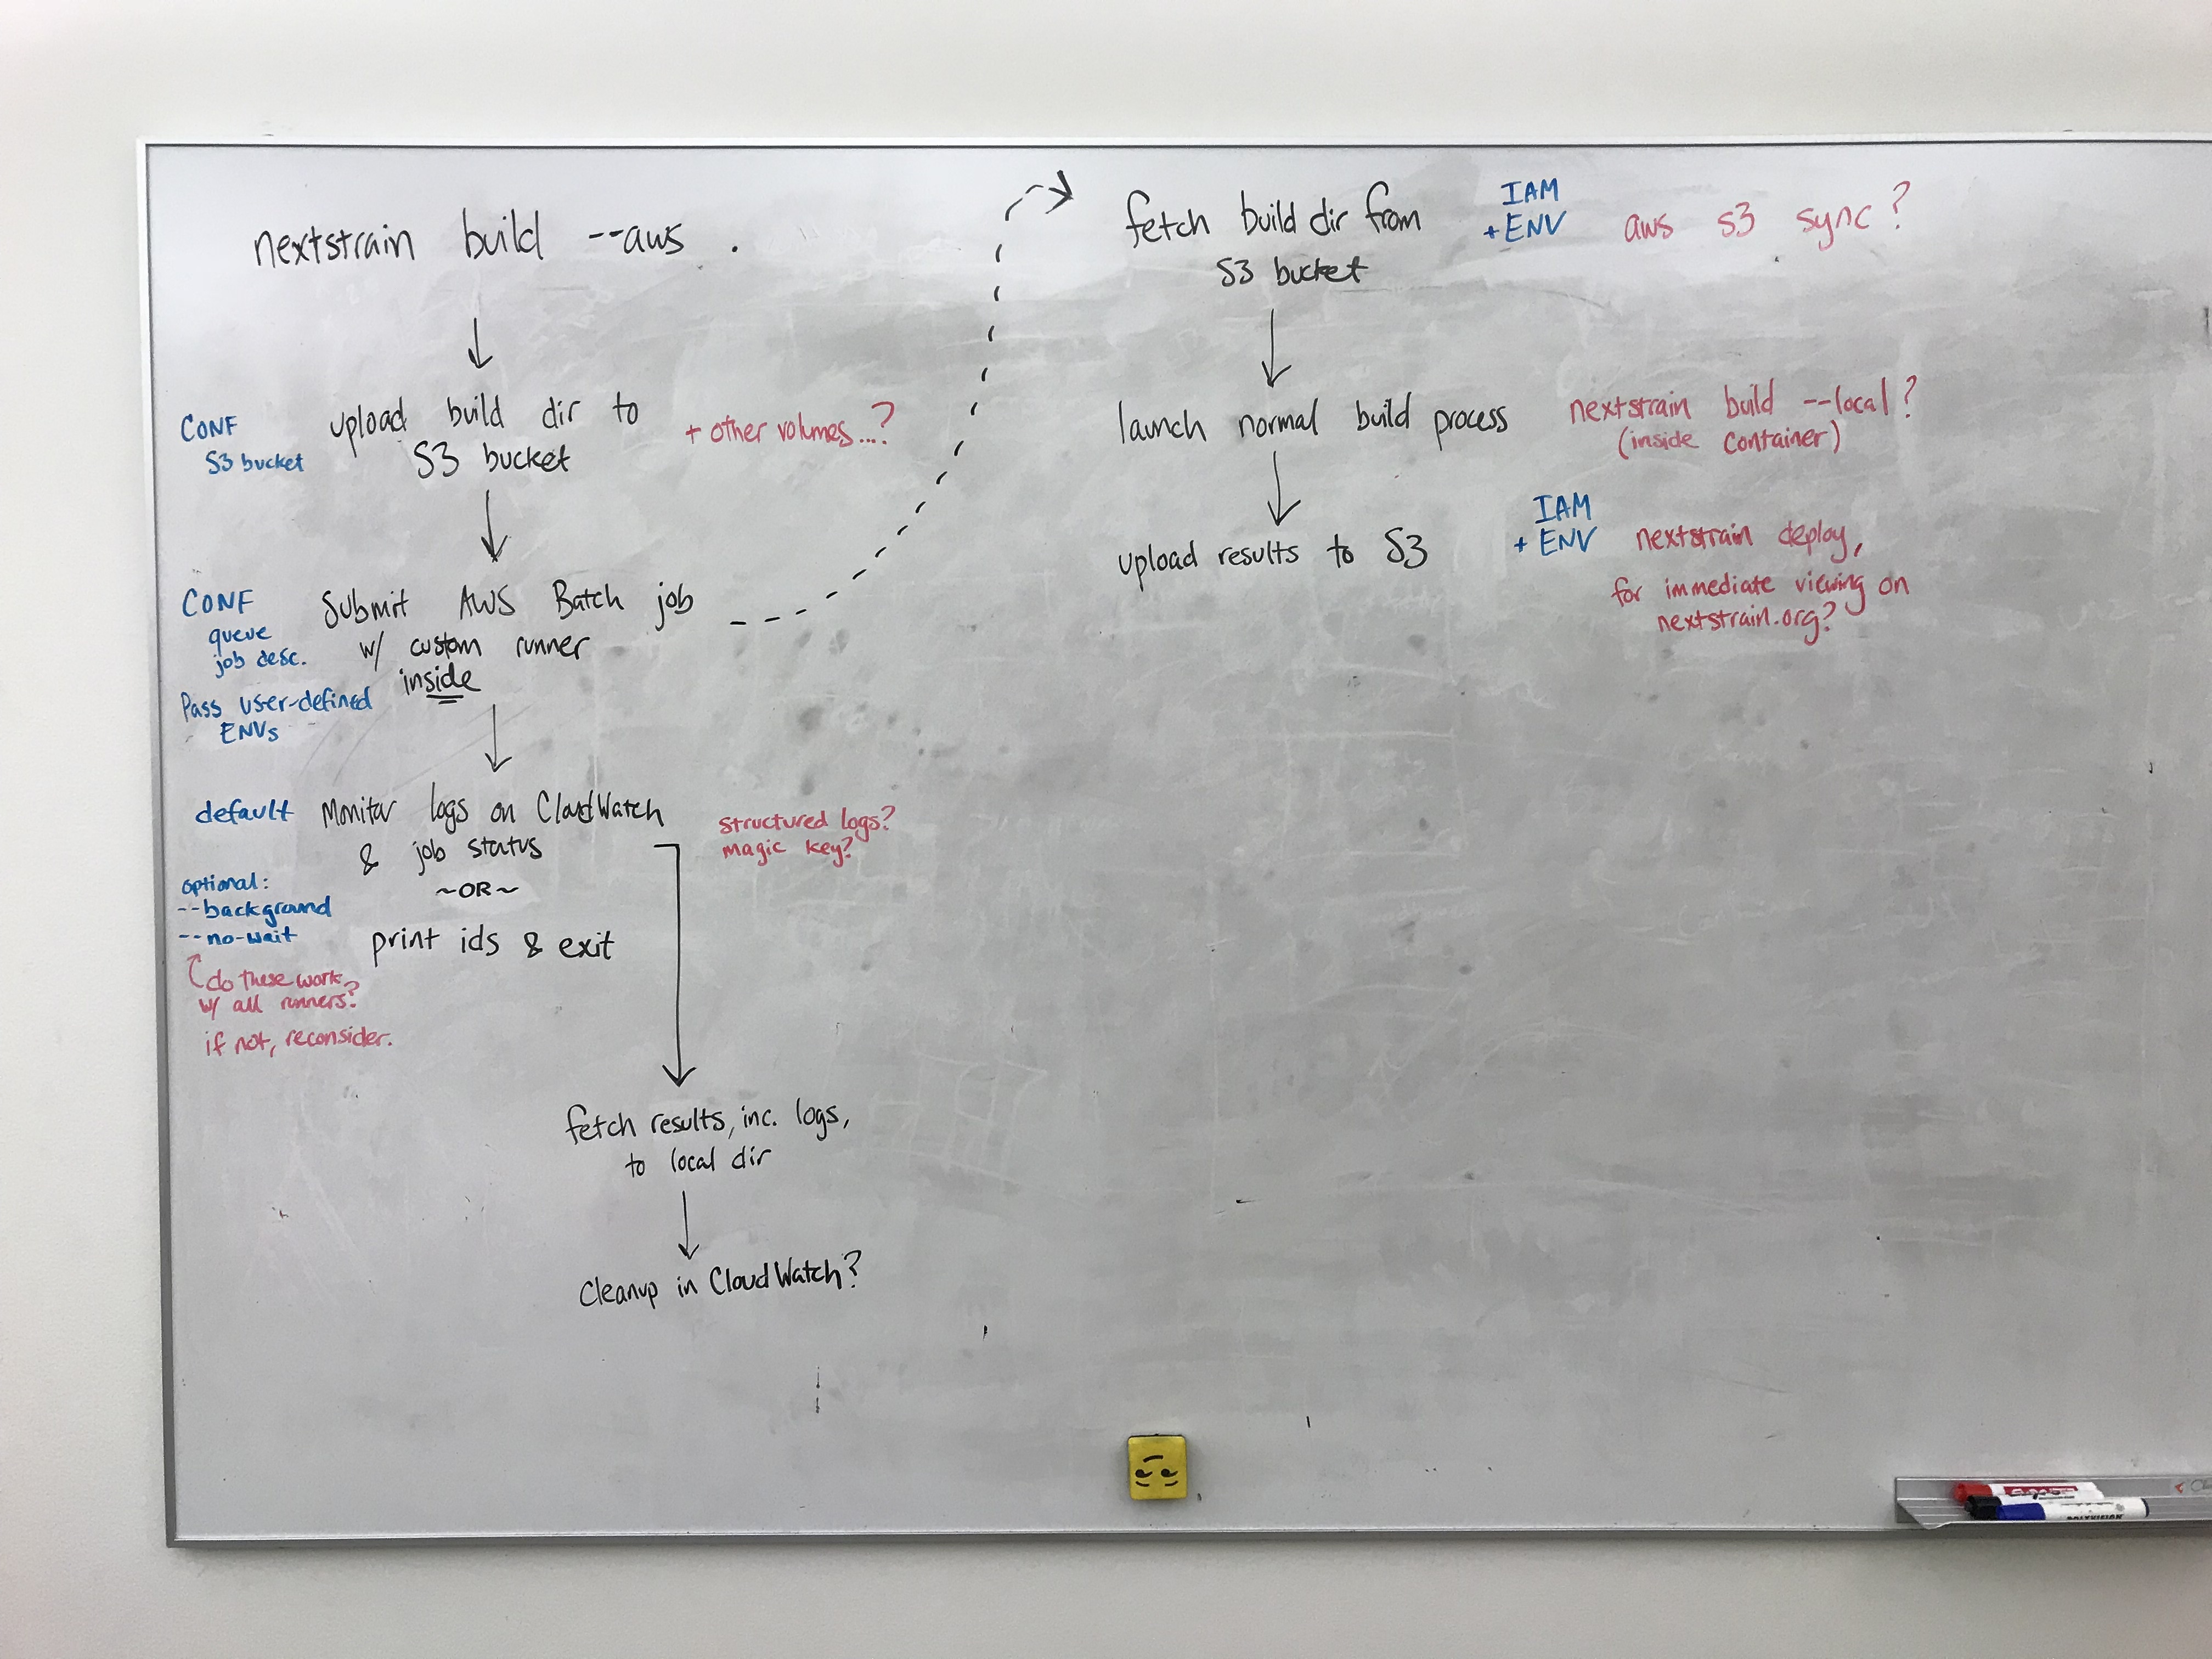 nextstrain build --aws .
CONF
S3 bucket
upload build dir to
S3 bucket
+ other volumes...?
CONF
queue
job desc.
Pass user-defined
ENVs
Submit AWS Batch job
w/ custom runner
inside
default
Monitor logs on CloudWatch
& job status
~OR~
print ids & exit
structured logs?
magic key?
optional:
--background
--no-wait
do these work
w/ all runners?
if not, reconsider.
fetch results, inc. logs,
to local dir
Cleanup in CloudWatch?
fetch build dir from
S3 bucket
IAM
+ ENV
aws s3 sync?
launch normal build process
nextstrain build --local?
(inside container)
upload results to S3
IAM
+ ENV
nextstrain deploy,
for immediate viewing on
nextstrain.org?